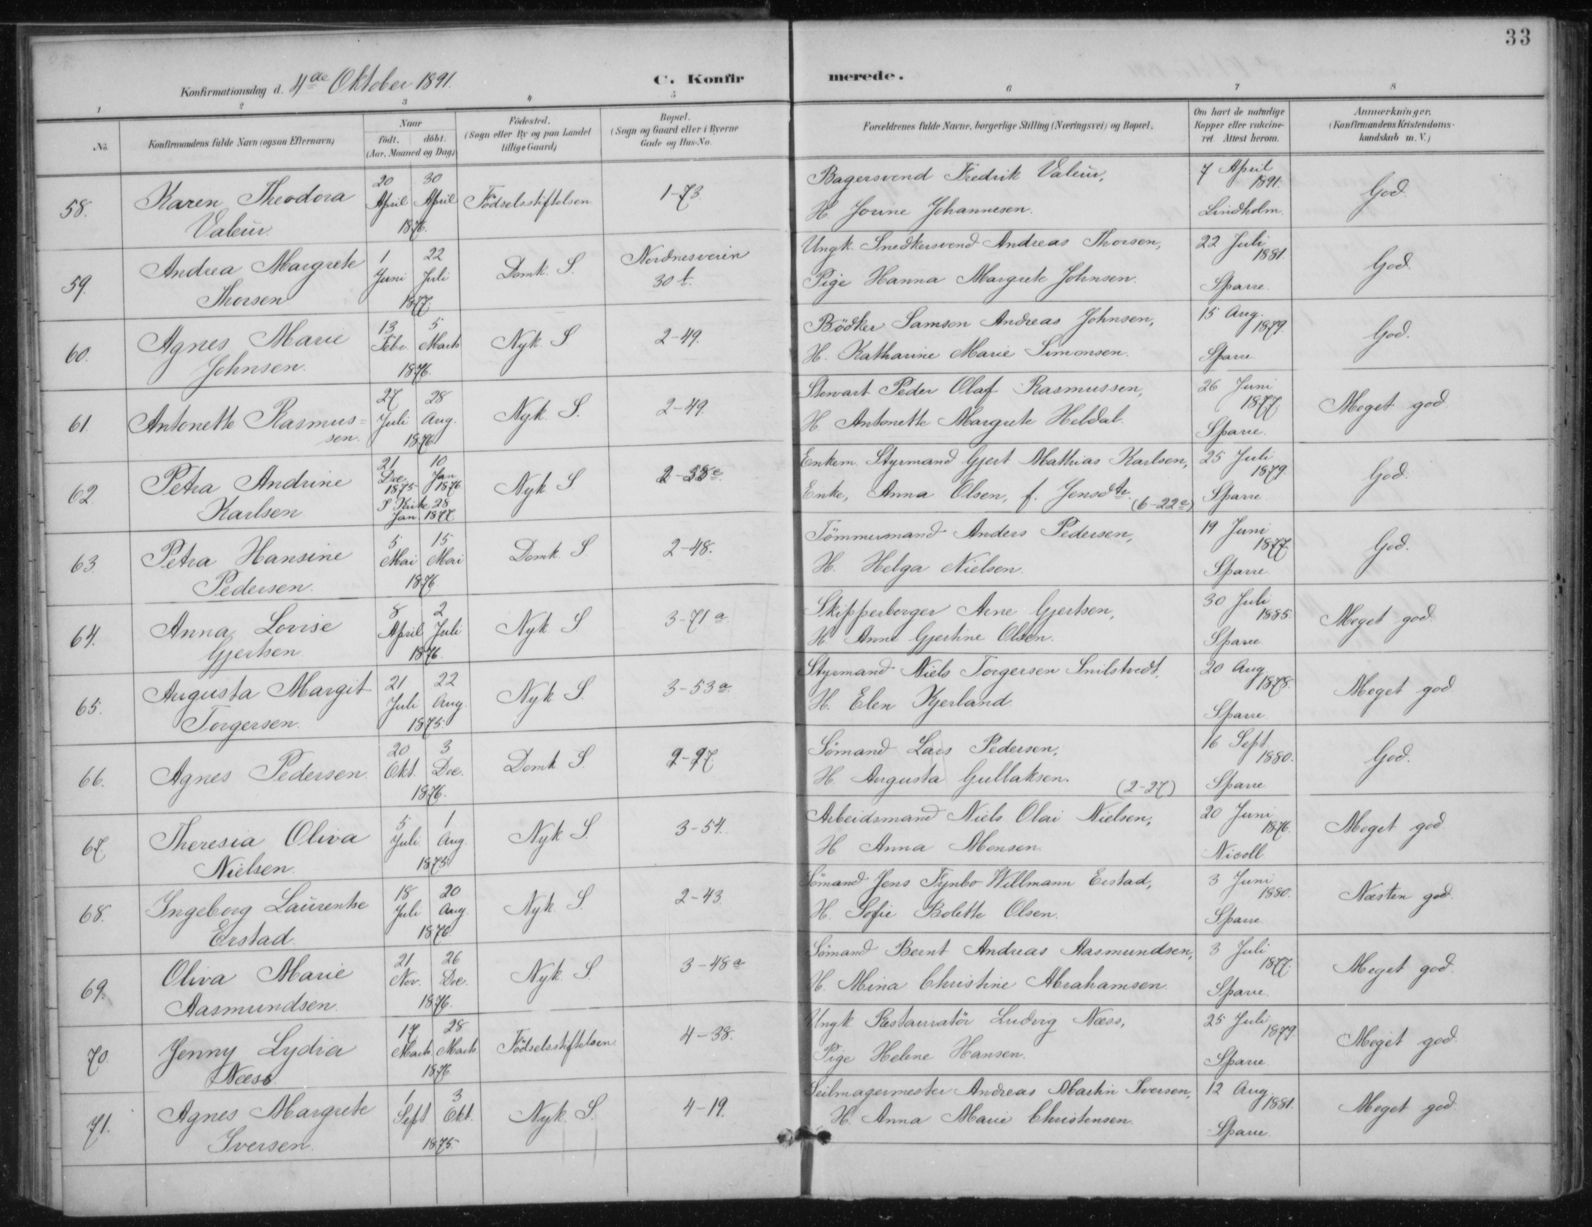 33
Konfirmationsdag d. 4de Oktober 1891.
C. Konfirmerede.
1 2 3 4 5 6 7 8
No.
Konfirmandens fulde Navn (ogsaa Efternavn)
Naar
født. døbt.
(Aar, Maaned og Dag)
Fødested.
(Sogn eller By og paa Landet
tillige Gaard)
Bopæl.
(Sogn og Gaard eller i Byerne
Gade og Hus-No.
Forældrenes fulde Navne, borgerlige Stilling (Næringsvei) og Bopæl.
Om havt de naturlige
Kopper eller vaccine-
ret. Attest herom.
Anmærkninger.
(Konfirmandens Kristendoms-
kundskab m. V.)
58. Karen Theodora Valeur. 20 April 30 April 1876. Fødselsstiftelsen 1-73 Bagersvend Fredrik Valeur, 7 April 1891. God.
H. Jorine Johannesen. Lindholm.
59. Andrea Margrete Thorsen 1 Juni 22 Juli 1877. Domk. S. Nordnesveien 30 b. Ungk. Snedkersvend Andreas Thorsen, 22 Juli 1881. God.
Pige Hanna Margrete Johnsen. Sparre.
60. Agnes Marie Johnsen. 13 Febr. 5 Marts 1876. Nyk. S 2-49. Bødker Samson Andreas Johnsen, 15 Aug. 1879. God.
H. Katharine Marie Simonsen. Sparre
61 Antonette Rasmus-
sen. 27 Juli 28 Aug. 1876 Nyk. S. 2-49. Stewart Peder Olaf Rasmussen, 26 Juni 1877 Meget god
H. Antonette Margrete Heldal. Sparre.
62 Petra Andrine Karlsen 21 Dec. 1875 10 Jan. 1876 S. Kirke 28 Jan. 1877 Nyk S Enkem. Styrmand Gjert Mathias Karlsen, 25 Juli 1879. God.
Enke, Anna Olsen, f. Jensdtr. (6-22a) Sparre
63. Petra Hansine Pedersen. 5 Mai 15 Mai 1876 Domk S 2-48. Tømmermand Anders Pedersen, 19 Juni 1877. God.
H. Helga Nielsen. Sparre.
64. Anna Lovise Gjertsen. 8 April 2 Juli 1876. Nyk. S 3-71a Skipperborger Arne Gjertsen, 30 Juli 1885. Meget god
H. Anne Gjertine Olsen. Sparre.
65. Augusta Margit Torgersen. 21 Juli 22 Aug. 1875 Nyk. S 3-53a. Styrmand Niels Torgersen Smilstvedt. 20 Aug 1878. Meget god
H. Elen Kjerland. Sparre
66. Agnes Pedersen. 20 Okt. 3 Dec. 1876. Domk S. 2-27 Sømand Lars Pedersen, 16 Sept. 1880. God.
H. Augusta Gullaksen. (2-27) Sparre
67 Theresia Oliva Nielsen. 5 Juli 1 Aug. 1875 Nyk S 3-54. Arbeidsmand Niels Olai Nielsen, 20 Juni 1876. Meget god
H. Anna Monsen. Nicoll
68. Ingeborg Laurentse Erstad. 18 Juli 20 Aug. 1876 Nyk. S. 2-43 Sømand Jens Fynbo Willmann Erstad, 3 Juni 1880. Næsten god.
H. Sofie Bolette Olsen. Sparre
69. Oliva Marie Aasmundsen. 21 Nov. 26 Dec. 1876. Nyk. S 3-48a Sømand Bernt Andreas Aasmundsen, 3 Juli 1877. Meget god.
H. Mina Christine Abrahamsen. Sparre.
70 Jenny Lydia Næss. 17 Marts 28 Marts 1876 Fødselsstiftelsen 4-38. Ungk. Restauratør Ludvig Næss, 25 Juli 1879. Meget god
Pige Helene Hansen. Sparre
71. Agnes Margrete Iversen. 1 Sept 3 Okt. 1875 Nyk. S. 4-19. Seilmagermester Andreas Martin Iversen, 12 Aug. 1881. Meget god
H. Anna Marie Christensen. Sparre.